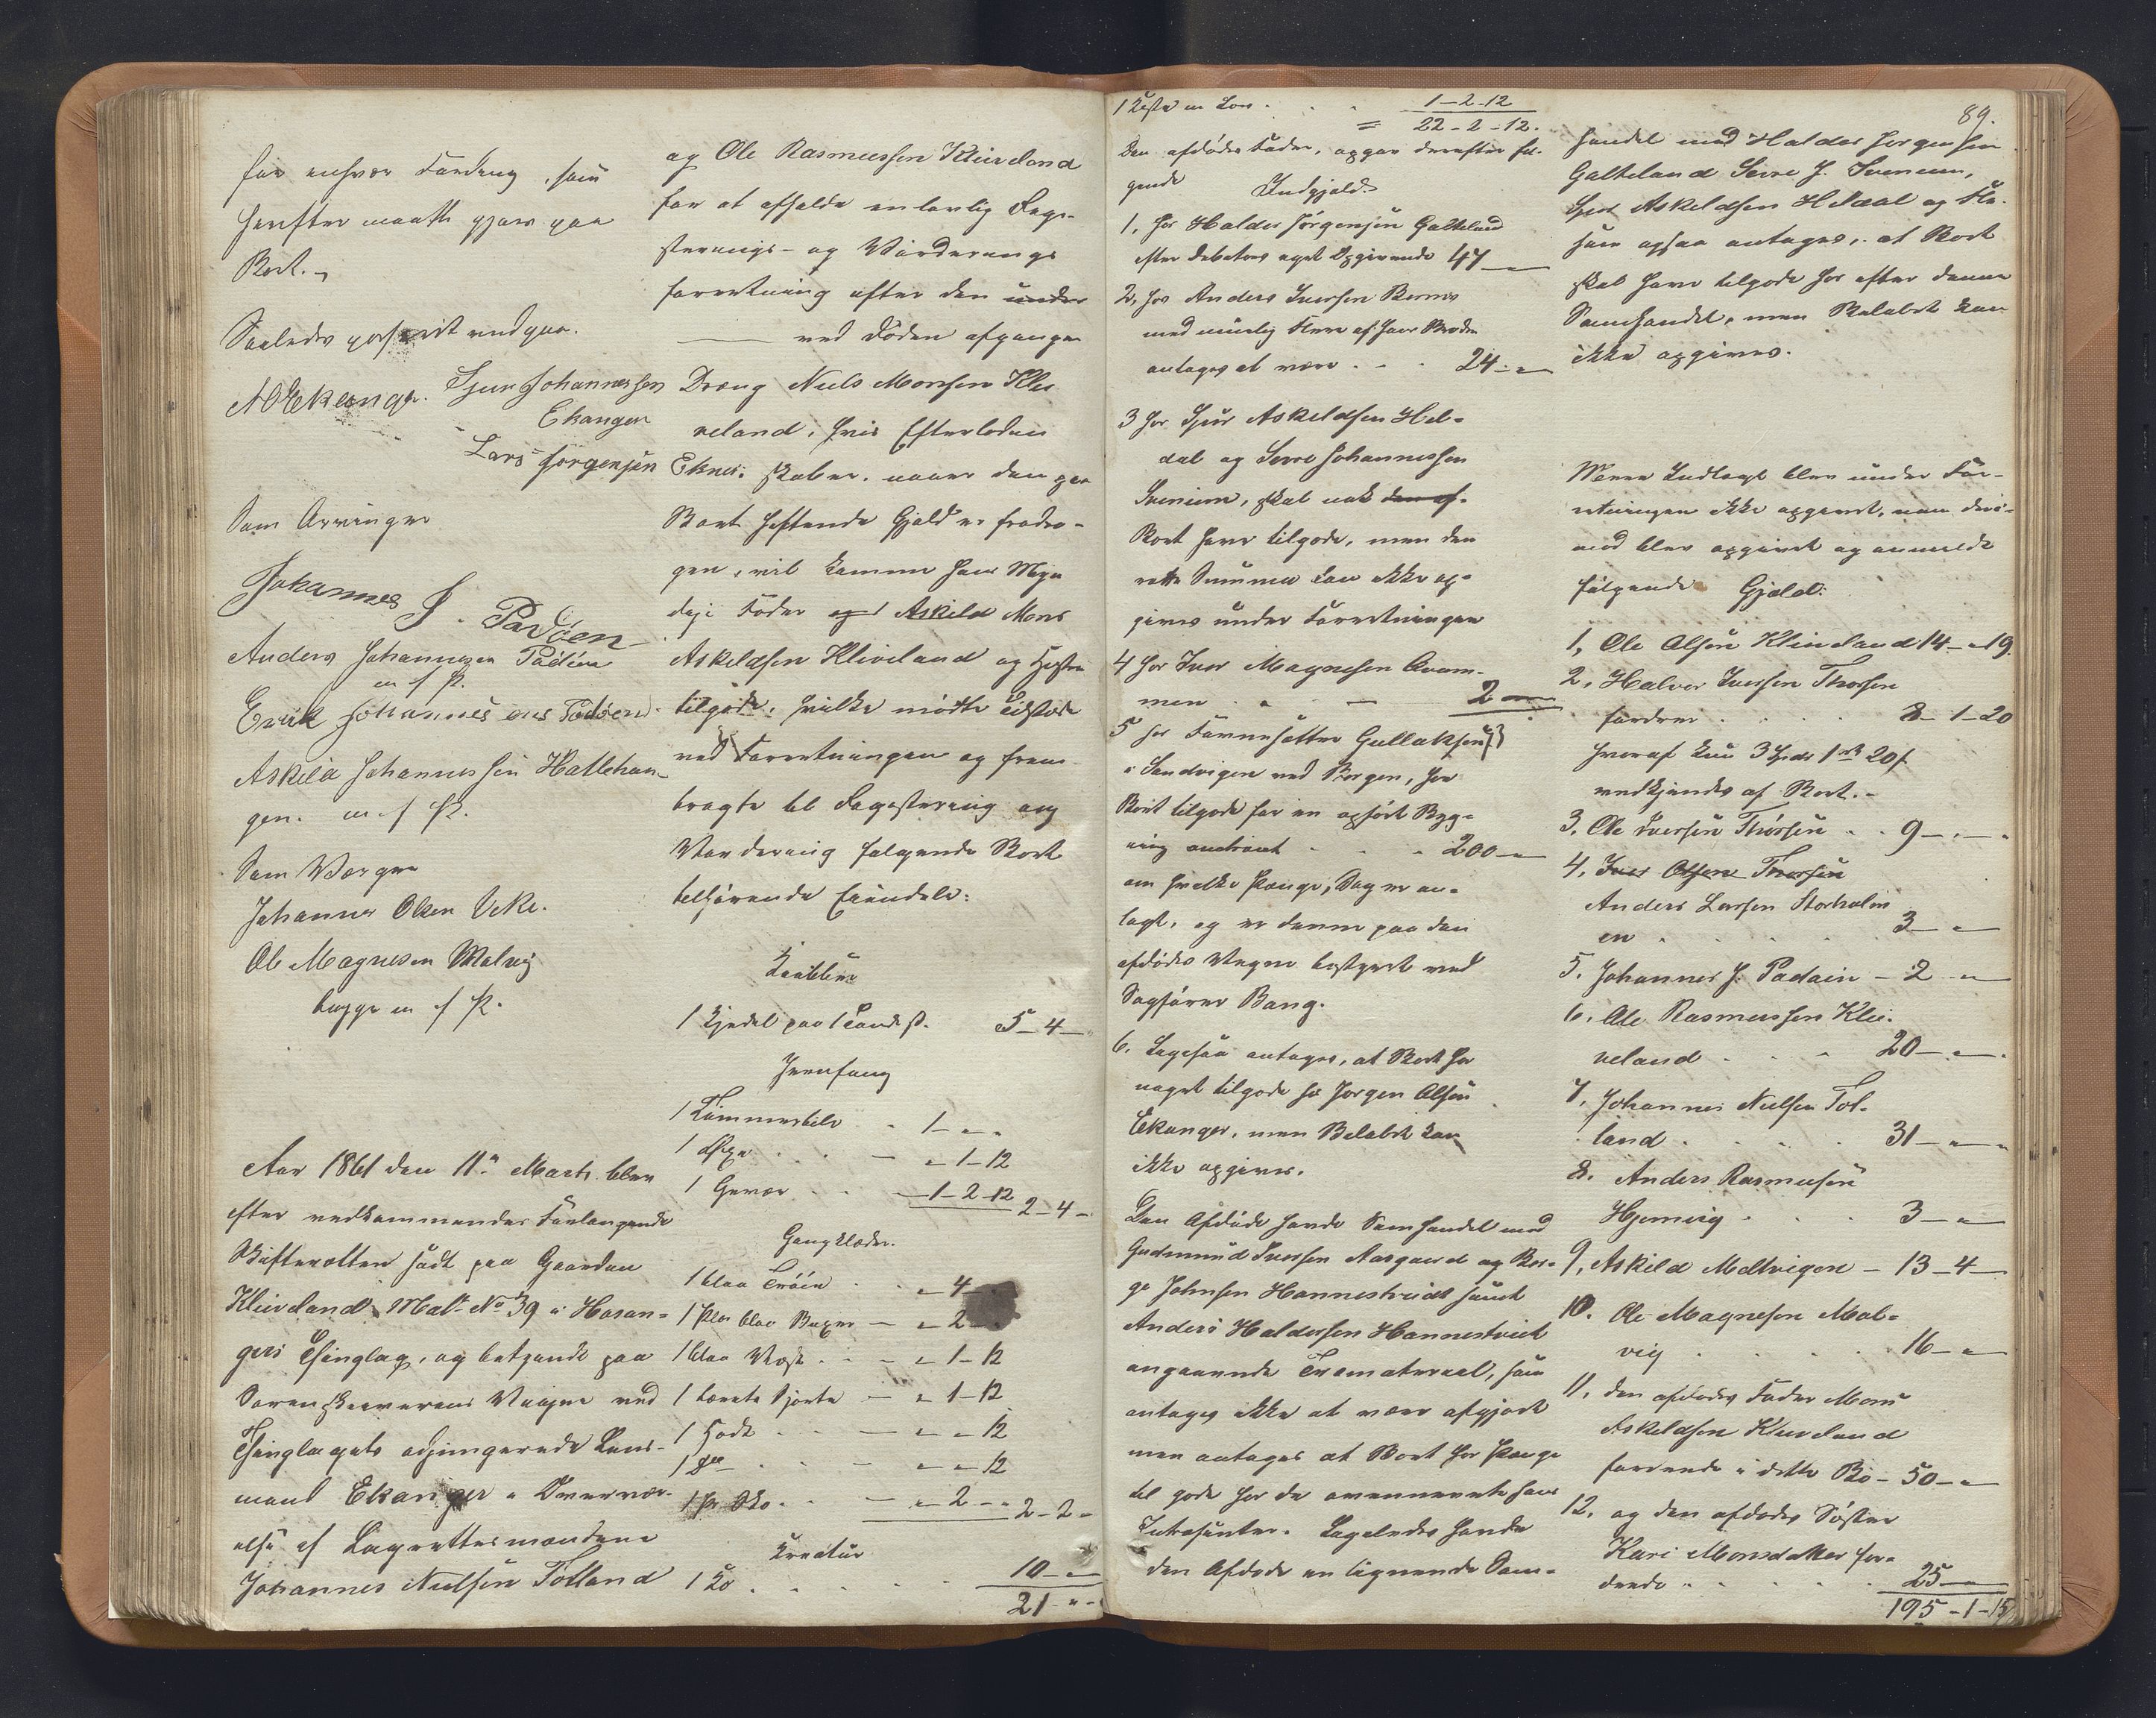 for enhver Fordring, som
herefter maatte gjøres paa
Boet.
Saaledes passeret vidner.
AOEkanger. Sjur Johannessen
Ekanger
Lars Jørgensen Eknes.
Som Arvinger
Johannes J. Padöen
Anders Johannesen Padöen
m f P.
Erik Johannes ens Padöen
Askild Johannessen Hatlehau-
gen. m. f P.
Som Værger
Johannes Olsen Veke.
Ole Magnesen Molvig
begge m f P.
Aar 1861 den 11te Marts blev
efter vedkommendes Forlangende
Skifteretten sadt paa Gaarden
Klieveland Matr No 39 i Hosan-
gers Thinglag, og betjendt paa
Sorenskriverens Vegne ved
Thinglagets adjungerede Lens-
mand Ekanger i Overvær-
else af Lagrettesmændene
Johannes Nielsen Totland
og Ole Rasmussen Klieveland
for at afholde en lovlig Regi-
sterings- og Vurderings
forretning efter den under
ved Døden afgangen
Dreng Niels Monsen Klie
veland, hvis Efterladen
skaber, naar den paa
Boet heftende Gjæld er fradra-
gen, vil komme hans Myn
dige Fader og Askild Mons
Askildsen Klieveland og Søster
tilgode, hvilke mødte tilstede
ved Forretningen og frem-
bragte til Registering og
Vurdering følgende Boet
tilhørende Eiendele:
Kobber
1 Kjedel paa 1 Tønde st. 5-4-
Jernfang
1 Tømmerbile . 1- " -
1 Øxe . . . - " - 1-12
1 Gevær . . - 1-2-12 2-4-
Gangklæder.
1 blaa Trøie . . " 4
1 Par blaa Buxer - " 2
1 blaa Vest . . - " 1-12
1 lærets Skjorte - " 1-12
1 Hat . . - " - " 12
1 do . . - " " 12
1 Pr Sko . . - " 2 - " 2-2-
Kreatur
1 Ko . . . . 10- "
21 " -
89.
1 Kiste m Laas . . . 1-2-12
= 22-2-12.
Den afdødes Fader, opgav derefter føl-
gende Indgjæld
1, hos Haldor Jørgensen Galteland
efter Debitors eget Opgivende 47 - "
2, hos Anders Iversen Bernes
med muelig Flere af hans Brødre
antages at være . . . 24 - "
3 hos Sjur Askildsen Hel-
dal og Sivre Johannessen
Ivenium, skal nok den af-
Boet have tilgode, men den
rette Summa kan ikke op-
gives under Forretningen
4 hos Iver Magnesen Aram-
men . " - 2 "
5 hos Farvesætter Gullaksen
i Sandvigen ved Bergen, har
Boet tilgode for en opført Byg-
ning omtrent . . . 200 - "
om hvilke Penge, Sag er an-
lagt, og er denne paa den
afdødes Vegne bestyret ved
Sagfører Bang.
6, Ligesaa antages, at Boet har
noget tilgode hos Jørgen Olsen
Ekanger, men Beløbet kan
ikke opgives.
Den Afdøde havde Samhandel med
Gudmund Iversen Aasgaard og Bør-
ge Johnsen Hannestveit samt
Anders Haldorsen Hannestveit
angaaende Træmateriael, som
antages ikke at være afgjort
men antages at Boet har Penge
til gode hos de ovennævnte hans
Intresenter. Ligeledes havde
den Afdøde en lignende Sam-
handel med Haldor Jørgensen
Galteland Sivre J. Ivenium,
Sjur Askildsen Heldal og Fle-
som ogsaa antages, at Boet
skal have tilgode hos efter denne
Samhandel, men Beløbet kan
ikke opgives.
Mere Indtægt blev under For-
retningen ikke opgivet, men deri-
mod blev opgivet og anmeldt
følgende Gjæld:
1, Ole Olsen Klieveland 14 - " 19.
2, Halvor Iversen Thorsen
fordrer . . . . 8-1-20
hvoraf kun 3 Spdr 1 ort 20 s
vedkjendes af Boet.-
3, Ole Iversen Thorsen . . 9 - " - "
4, Iver Olsen Thorsen
Anders Larsen Storholm
en . . . . . 3 - "
5, Johannes J. Padøin - 2 - "
6, Ole Rasmussen Klie-
veland . . . 20 - "
7, Johannes Nielsen Tot-
land . . . . 31 - " "
8. Anders Rasmusen
Hjemvig . . . 3 - "
9, Askild Molvigen - 13-4-
10. Ole Magnesen Mol-
vig . . . . 16 - "
11, den afdødes Fader Mons
Askildsen Klieveland
fordrende i dette Bo - 50 - "
12, og den afdødes Søster
Kari Monsdatter for-
drende . . . . 25 - "
195-1-15